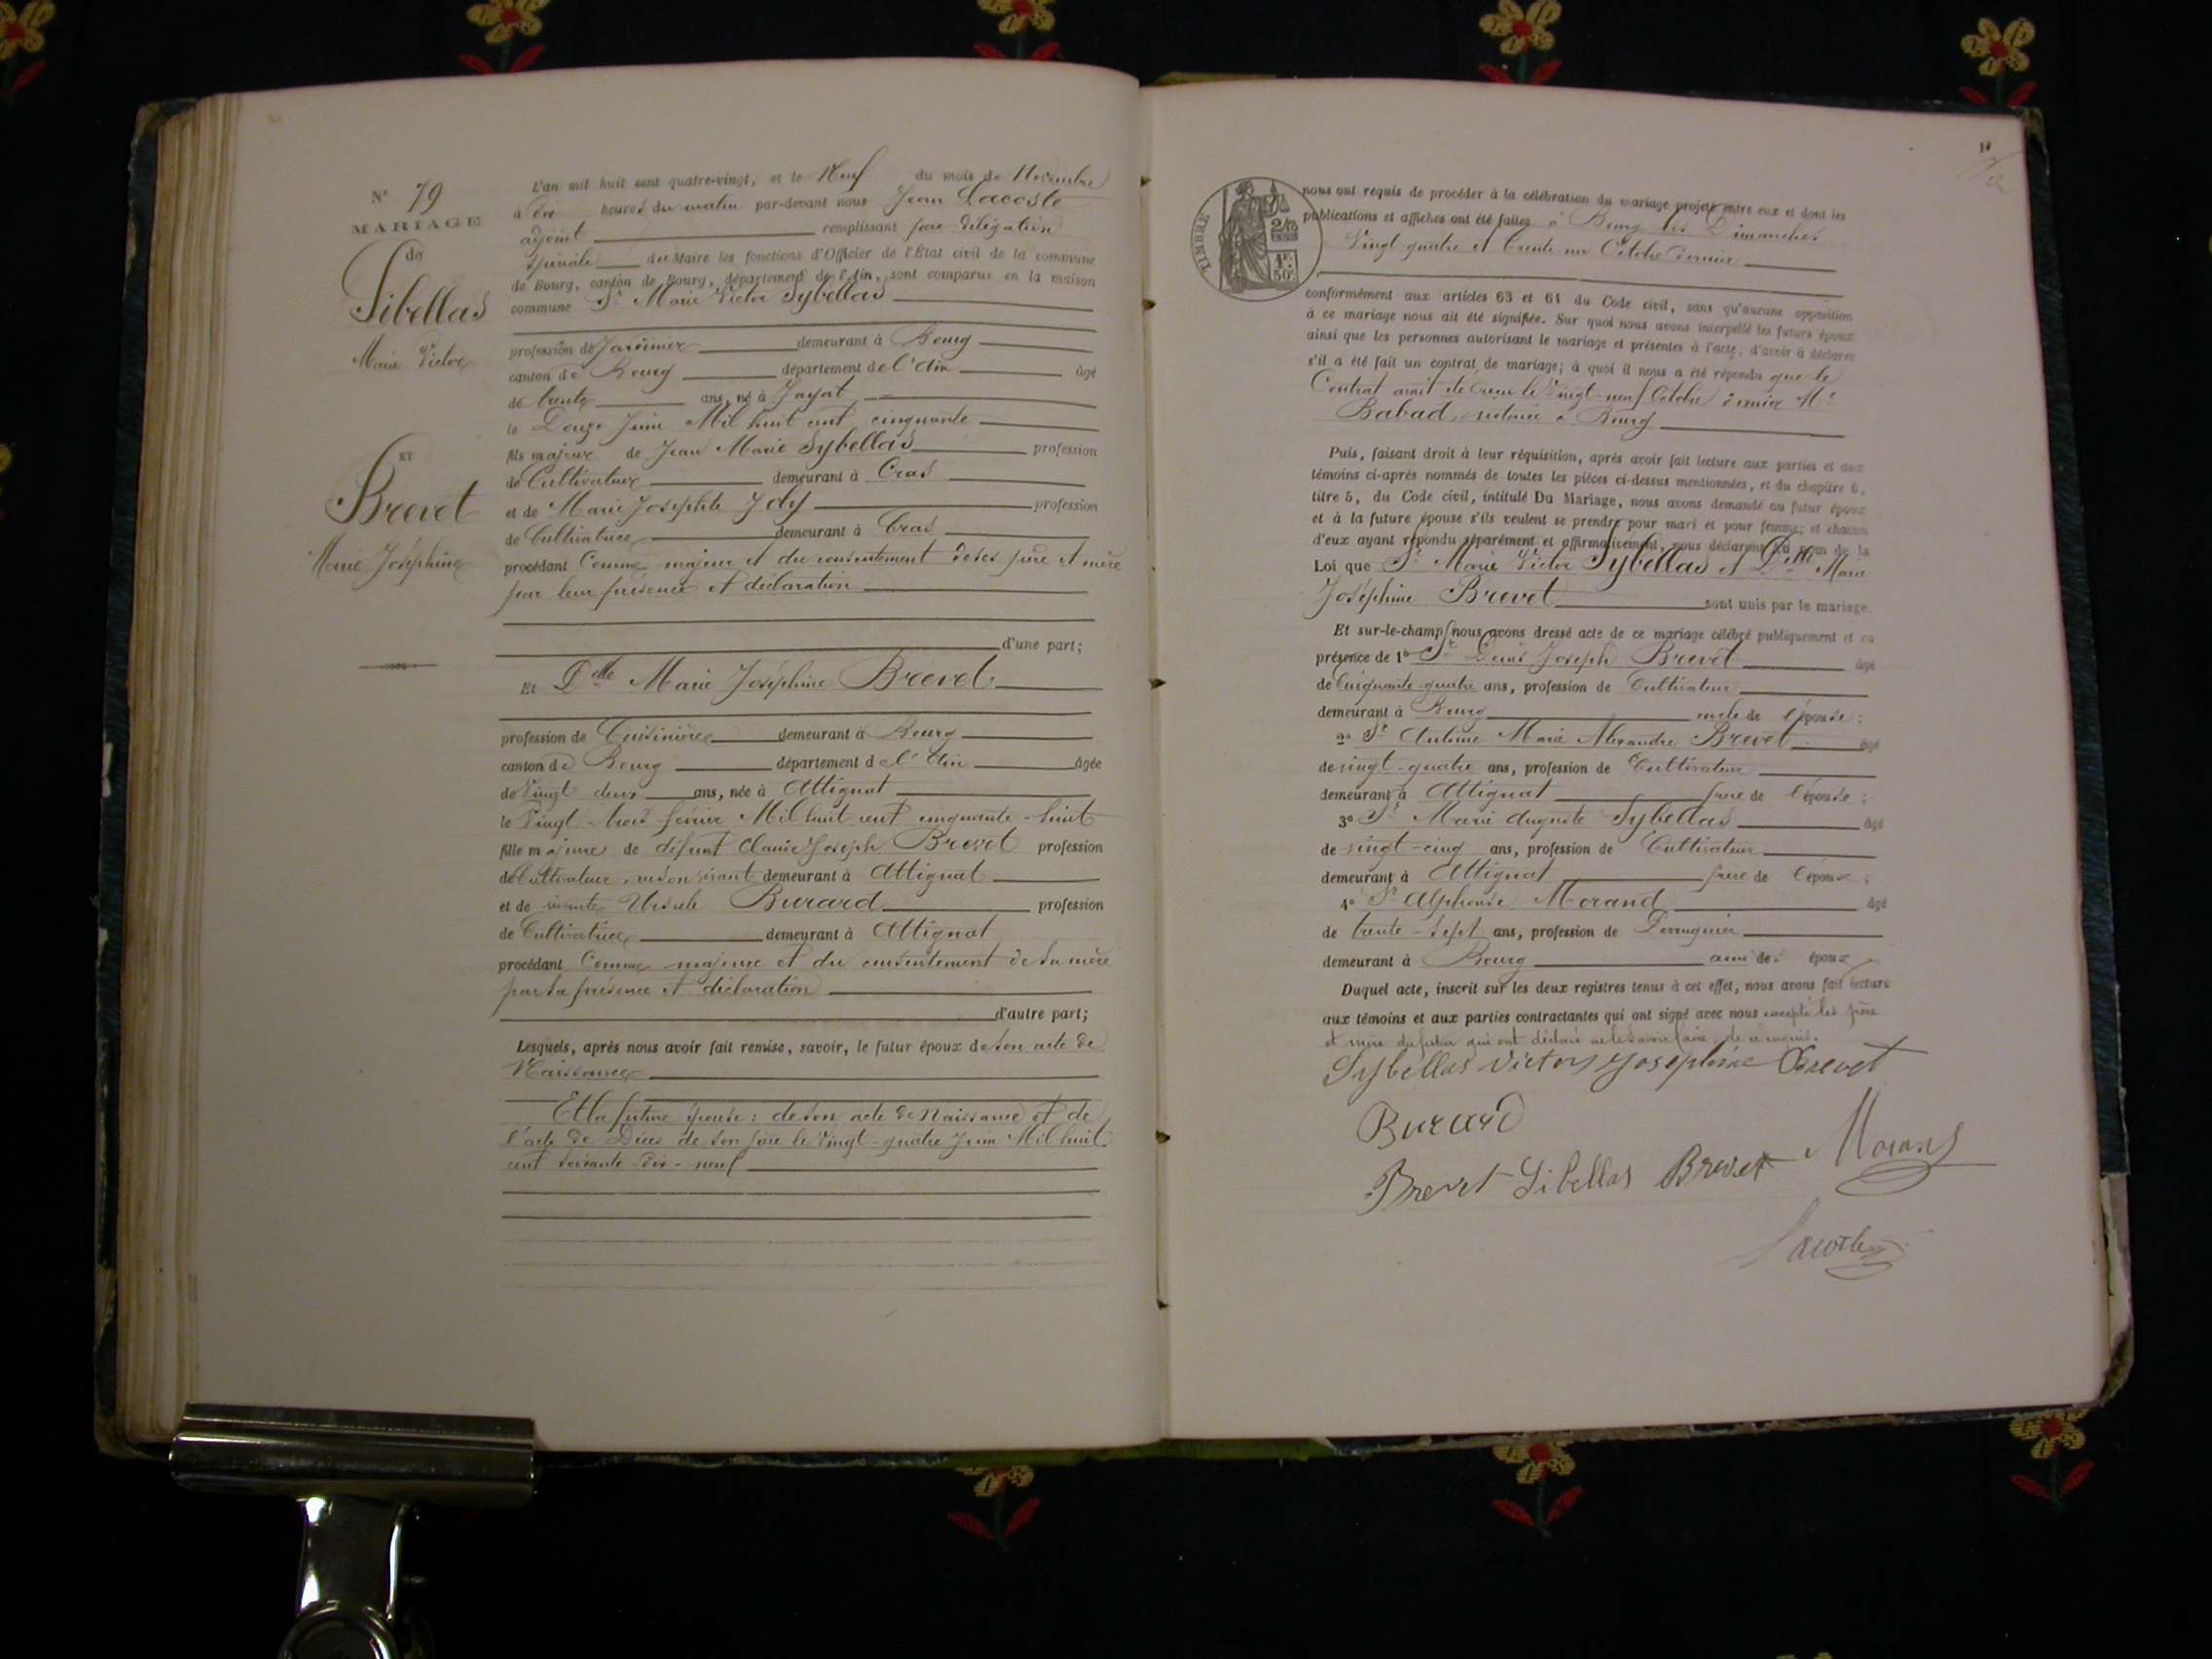 N° 79
MARIAGE
de
Sibellas
Marie Victor
ET
Brevet
Marie Joséphine
L'an mil huit cent quatre-vingt, et le Neuf du mois de Novembre
à dix heures du matin par-devant nous Jean Lacoste
adjoint remplissant par délégation
spéciale du Maire les fonctions d'Officier de l'État civil de la commune
de Bourg, canton de Bourg, département de l'Ain, sont comparus en la maison
commune Sr Marie Victor Sybellas
profession de Jardinier demeurant à Bourg
canton de Bourg département de l'Ain âgé
de trente ans, né à Jayat
le Douze Juin Mil huit cent cinquante
fils majeur de Jean Marie Sybellas profession
de Cultivateur demeurant à Cras
et de Marie Josephte Joly profession
de Cultivatrice demeurant à Cras
procédant Comme majeur et du consentement de ses père et mère
par leur présence et déclaration
d'une part;
Et Dlle Marie Joséphine Brevet
profession de Cuisinière demeurant à Bourg
canton de Bourg département de l'Ain âgée
de Vingt deux ans, née à Attignat
le Vingt-trois février Mil huit cent cinquante-huit
fille majeure de défunt Claude Joseph Brevet profession
de Cultivateur, de son vivant demeurant à Attignat
et de vivante Ursule Burard profession
de Cultivatrice demeurant à Attignat
procédant Comme majeure et du consentement de sa mère
par sa présence et déclaration
d'autre part;
Lesquels, après nous avoir fait remise, savoir, le futur époux de son acte de
Naissance
Et la future épouse: de son acte de Naissance et de
l'acte de Décès de son père le Vingt-quatre Juin Mil huit
cent soixante-dix-neuf
TIMBRE
2/10
1F.
50c
nous ont requis de procéder à la célébration du mariage projeté entre eux et dont les
publications et affiches ont été faites à Bourg les Dimanches
Vingt-quatre et trente-un Octobre dernier
conformément aux articles 63 et 64 du Code civil, sans qu'aucune opposition
à ce mariage nous ait été signifiée. Sur quoi nous avons interpellé les futurs époux
ainsi que les personnes autorisant le mariage et présentes à l'acte, d'avoir à déclarer
s'il a été fait un contrat de mariage; à quoi il nous a été répondu que le
Contrat avait été reçu le Vingt-neuf Octobre dernier Me
Babad, notaire à Bourg
Puis, faisant droit à leur réquisition, après avoir fait lecture aux parties et aux
témoins ci-après nommés de toutes les pièces ci-dessus mentionnées, et du chapitre 6,
titre 5, du Code civil, intitulé Du Mariage, nous avons demandé au futur époux
et à la future épouse s'ils veulent se prendre pour mari et pour femme; et chacun
d'eux ayant répondu séparément et affirmativement, nous déclarons au nom de la
Loi que Sr Marie Victor Sybellas et Dlle Marie
Joséphine Brevet sont unis par le mariage.
Et sur-le-champ nous avons dressé acte de ce mariage célébré publiquement et en
présence de 1° Sr Denis Joseph Brevet âgé
de Cinquante-quatre ans, profession de Cultivateur
demeurant à Bourg oncle de l'épouse;
2° Sr Antoine Marie Alexandre Brevet âgé
de vingt-quatre ans, profession de Cultivateur
demeurant à Attignat frère de l'épouse;
3° Sr Marie Auguste Sybellas âgé
de vingt-cinq ans, profession de Cultivateur
demeurant à Attignat frère de l'époux;
4° Sr Alphonse Morand âgé
de trente-sept ans, profession de Perruquier
demeurant à Bourg ami des époux
Duquel acte, inscrit sur les deux registres tenus à cet effet, nous avons fait lecture
aux témoins et aux parties contractantes qui ont signé avec nous excepté les père
et mère du futur qui ont déclaré ne le savoir faire, de ce requis.
Sybellas Victor Josephine Brevet
Burard
Brevet Sibellas Brevet Morand
Lacoste